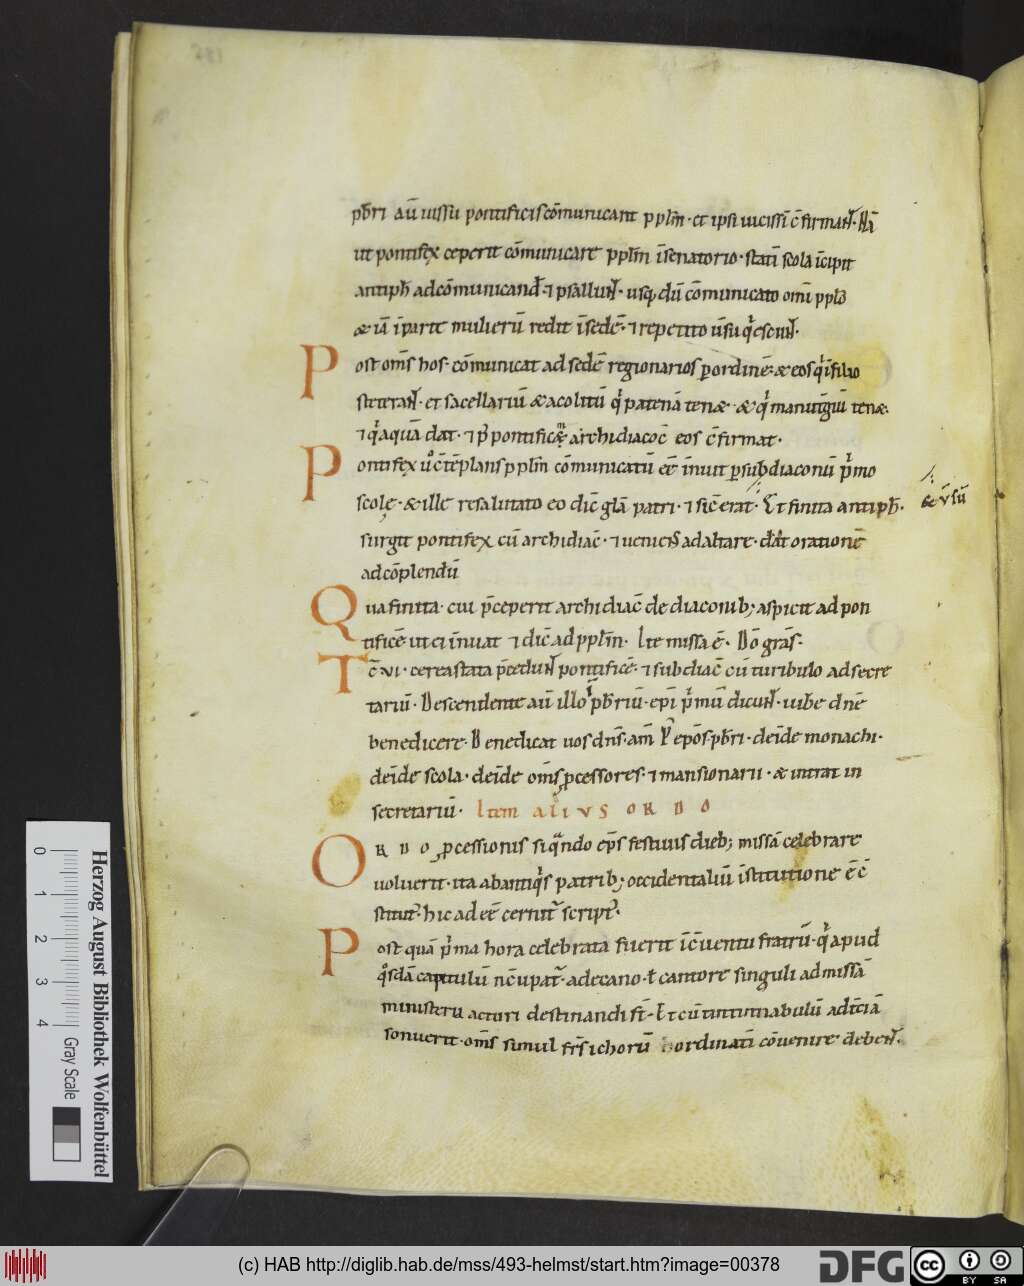 pb̄ri aū iussu pontificis cōmunicant pplm̄· et ipsi uicissī c̄firmant·
ut pontifex ceperit cōmunicare pplm̄ ī senatorio· statī scola īcipit
antiph̄ ad cōmunicand̄· ⁊ psallunt· usq; dū cōmunicato omī pplo
& iā ī parte mulierū redit ī sedē· ⁊ repetito ūsu q'escunt·
Post om̄s hos· cōmunicat ad sedē regionarios ꝑ ordinē· & eos q' ī filio
steterant· et sacellariū & acolitū q' patenā ten&· & q' manutgiū ten&·
⁊ q' aquā dat· ⁊ p' pontificē archidiacoc̄ eos c̄firmat·
Pontifex u° c̄tēplans pplm̄ cōmunicatū eē īnuit ꝑ subdiaconū p'mo
scole· & ille resalutato eo dic̄ glā patri· ⁊ sic̄ erat· Et finita antiph̄·
& v̄sū
surgit pontifex cū archidiac̄· ⁊ ueniens ad altare· dat orationē
ad cōplendū
Qua finita· cui p̄ceperit archidiac̄ de diaconib; aspicit ad pon
tificē ut ei īnuat ⁊ dic̄ ad pplm̄· Ite missa ē· Dō grās·
Tc̄ ·vi· cereastata p̄cedunt pontificē· ⁊ subdiac̄ cū turibulo ad secre
tariū· Descendente aū illo ī pb̄riū· ep̄i p'mū dicunt· iube dn̄e
benedicere· Benedicat uos dn̄s· am̄ P' ep̄os· pb̄ri· deīde monachi·
deīde scola· deīde om̄s ꝓcessores· ⁊ mansionarii· & intrat in
secretariū· Item alius ORDO
ORDO ꝓcessionis si qn̄do ep̄s festiuis dieb; missā celebrare
uoluerit· ita ab antiq's patrib; occidentaliū īstitutione ē c̄
stitut'· hic ad eē cernit' script'·
Post quā p'ma hora celebrata fuerit ī c̄uentu fratrū· q' apud
q°sdā capitulū nc̄upat'· a decano· ł cantore singuli ad missā
ministerii acturi destinandi st̄· Et cū tintinnabulū ad tciā
sonuerit· om̄s simul frs̄ ī chorū ordinatī cōuenire debent·
0
1
2
3
4
Gray Scale
Herzog August Bibliothek Wolfenbüttel
(c) HAB http://diglib.hab.de/mss/493-helmst/start.htm?image=00378
DFG
cc
BY SA